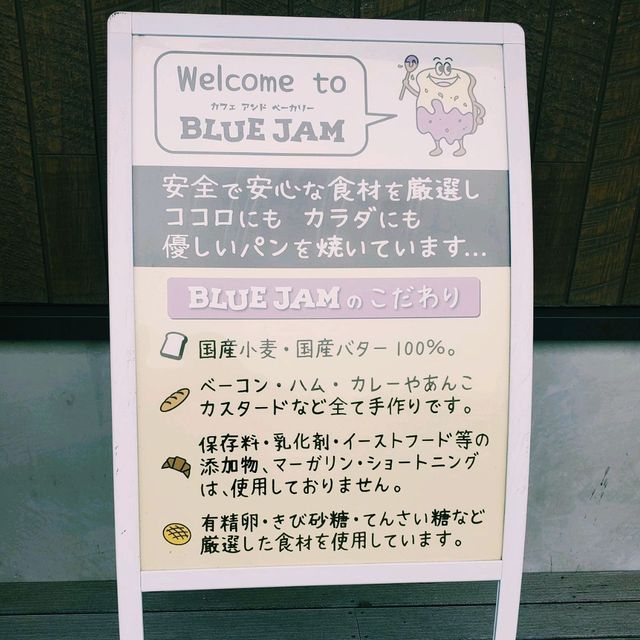 Welcome to
カフェ アンド ベーカリー
BLUE JAM
安全で安心な食材を厳選し
ココロにも カラダにも
優しいパンを焼いています...
BLUE JAMのこだわり
国産小麦・国産バター 100%。
ベーコン・ハム・カレーやあんこ
カスタードなど全て手作りです。
保存料・乳化剤・イーストフード等の
添加物、マーガリン・ショートニング
は、使用しておりません。
有精卵・きび砂糖・てんさい糖など
厳選した食材を使用しています。